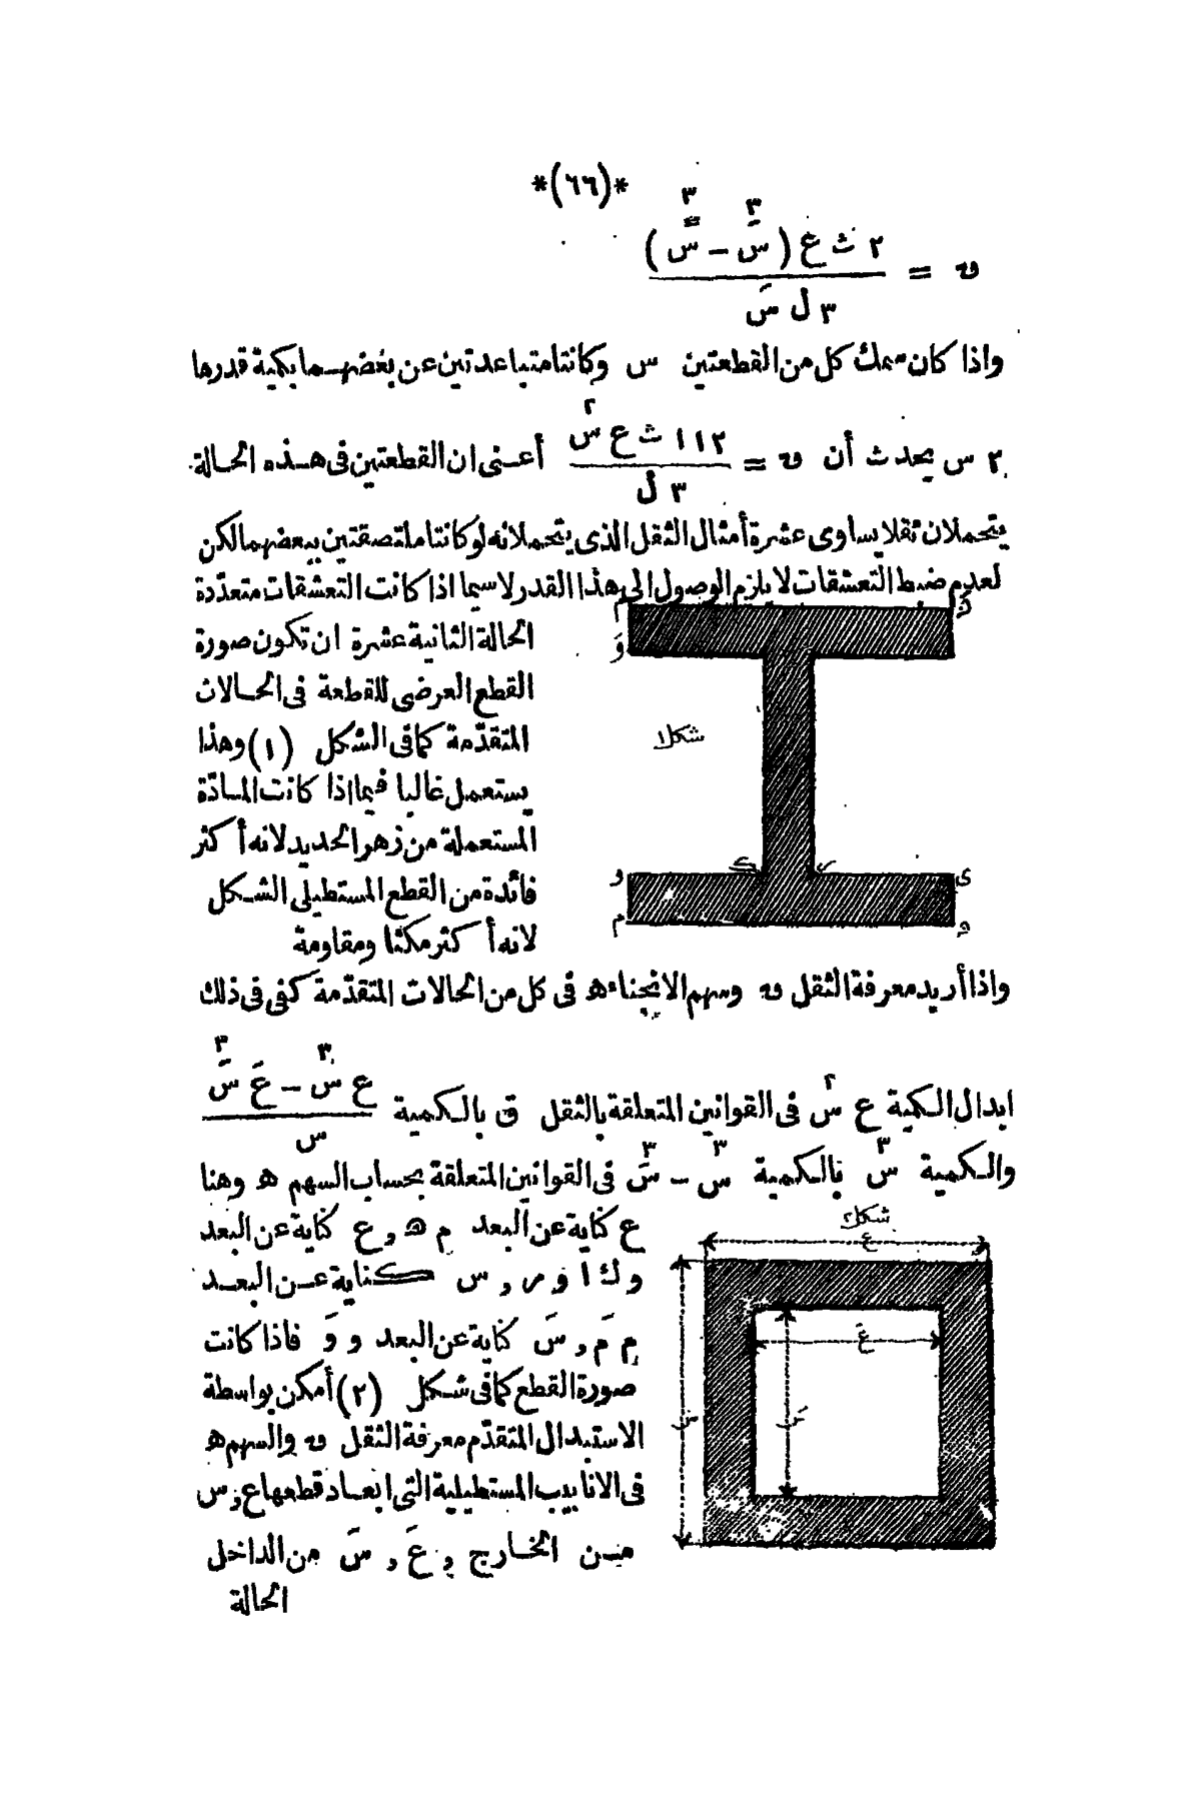 *(٦٦)*
ق = ٢ ث ع (سَ٣ - سً٣) / ٣ ل سَ
واذا كان سمك كل من القطعتين س وكانتا متباعدتين عن بعضهما بكمية قدرها
٢ س يحدث أن ق = ١١٢ ث ع س٢ / ٣ ل أعنى ان القطعتين فى هذه الحالة
يتحملان ثقلا يساوى عشرة أمثال الثقل الذى يتحملانه لو كانتا ملتصقتين ببعضهما لكن
لعدم ضبط التعشقات لا يلزم الوصول الى هذا القدر لاسيما اذا كانت التعشقات متعدّدة
الحالة الثانية عشرة ان تكون صورة
القطع العرضى للقطعة فى الحالات
المتقدّمة كما فى الشكل (١) وهذا
يستعمل غالبا فيما اذا كانت المادّة
المستعملة من زهر الحديد لانه أكثر
فائدة من القطع المستطيلى الشكل
لانه أكثر مكثا ومقاومة
م
وَ
شكل ١
ك
ر
و
ى
م
ه
واذا أريد معرفة الثقل ق وسهم الانحناء ه فى كل من الحالات المتقدّمة كفى فى ذلك
ابدال الكمية ع س٢ فى القوانين المتعلقة بالثقل ق بالكمية (ع س٣ - عَ سَ٣) / س
والكمية س٣ بالكمية س٣ - سَ٣ فى القوانين المتعلقة بحساب السهم ه وهنا
ع كناية عن البعد م ه و عَ كناية عن البعد
و ك او ر و س كناية عن البعد
م مَ و سَ كناية عن البعد و وَ فاذا كانت
صورة القطع كما فى شكل (٢) أمكن بواسطة
الاستبدال المتقدّم معرفة الثقل ق والسهم ه
فى الانابيب المستطيلية التى ابعاد قطعها ع و س
من الخارج و عَ و سَ من الداخل
شكل ٢
ع
عَ
س
سَ
الحالة